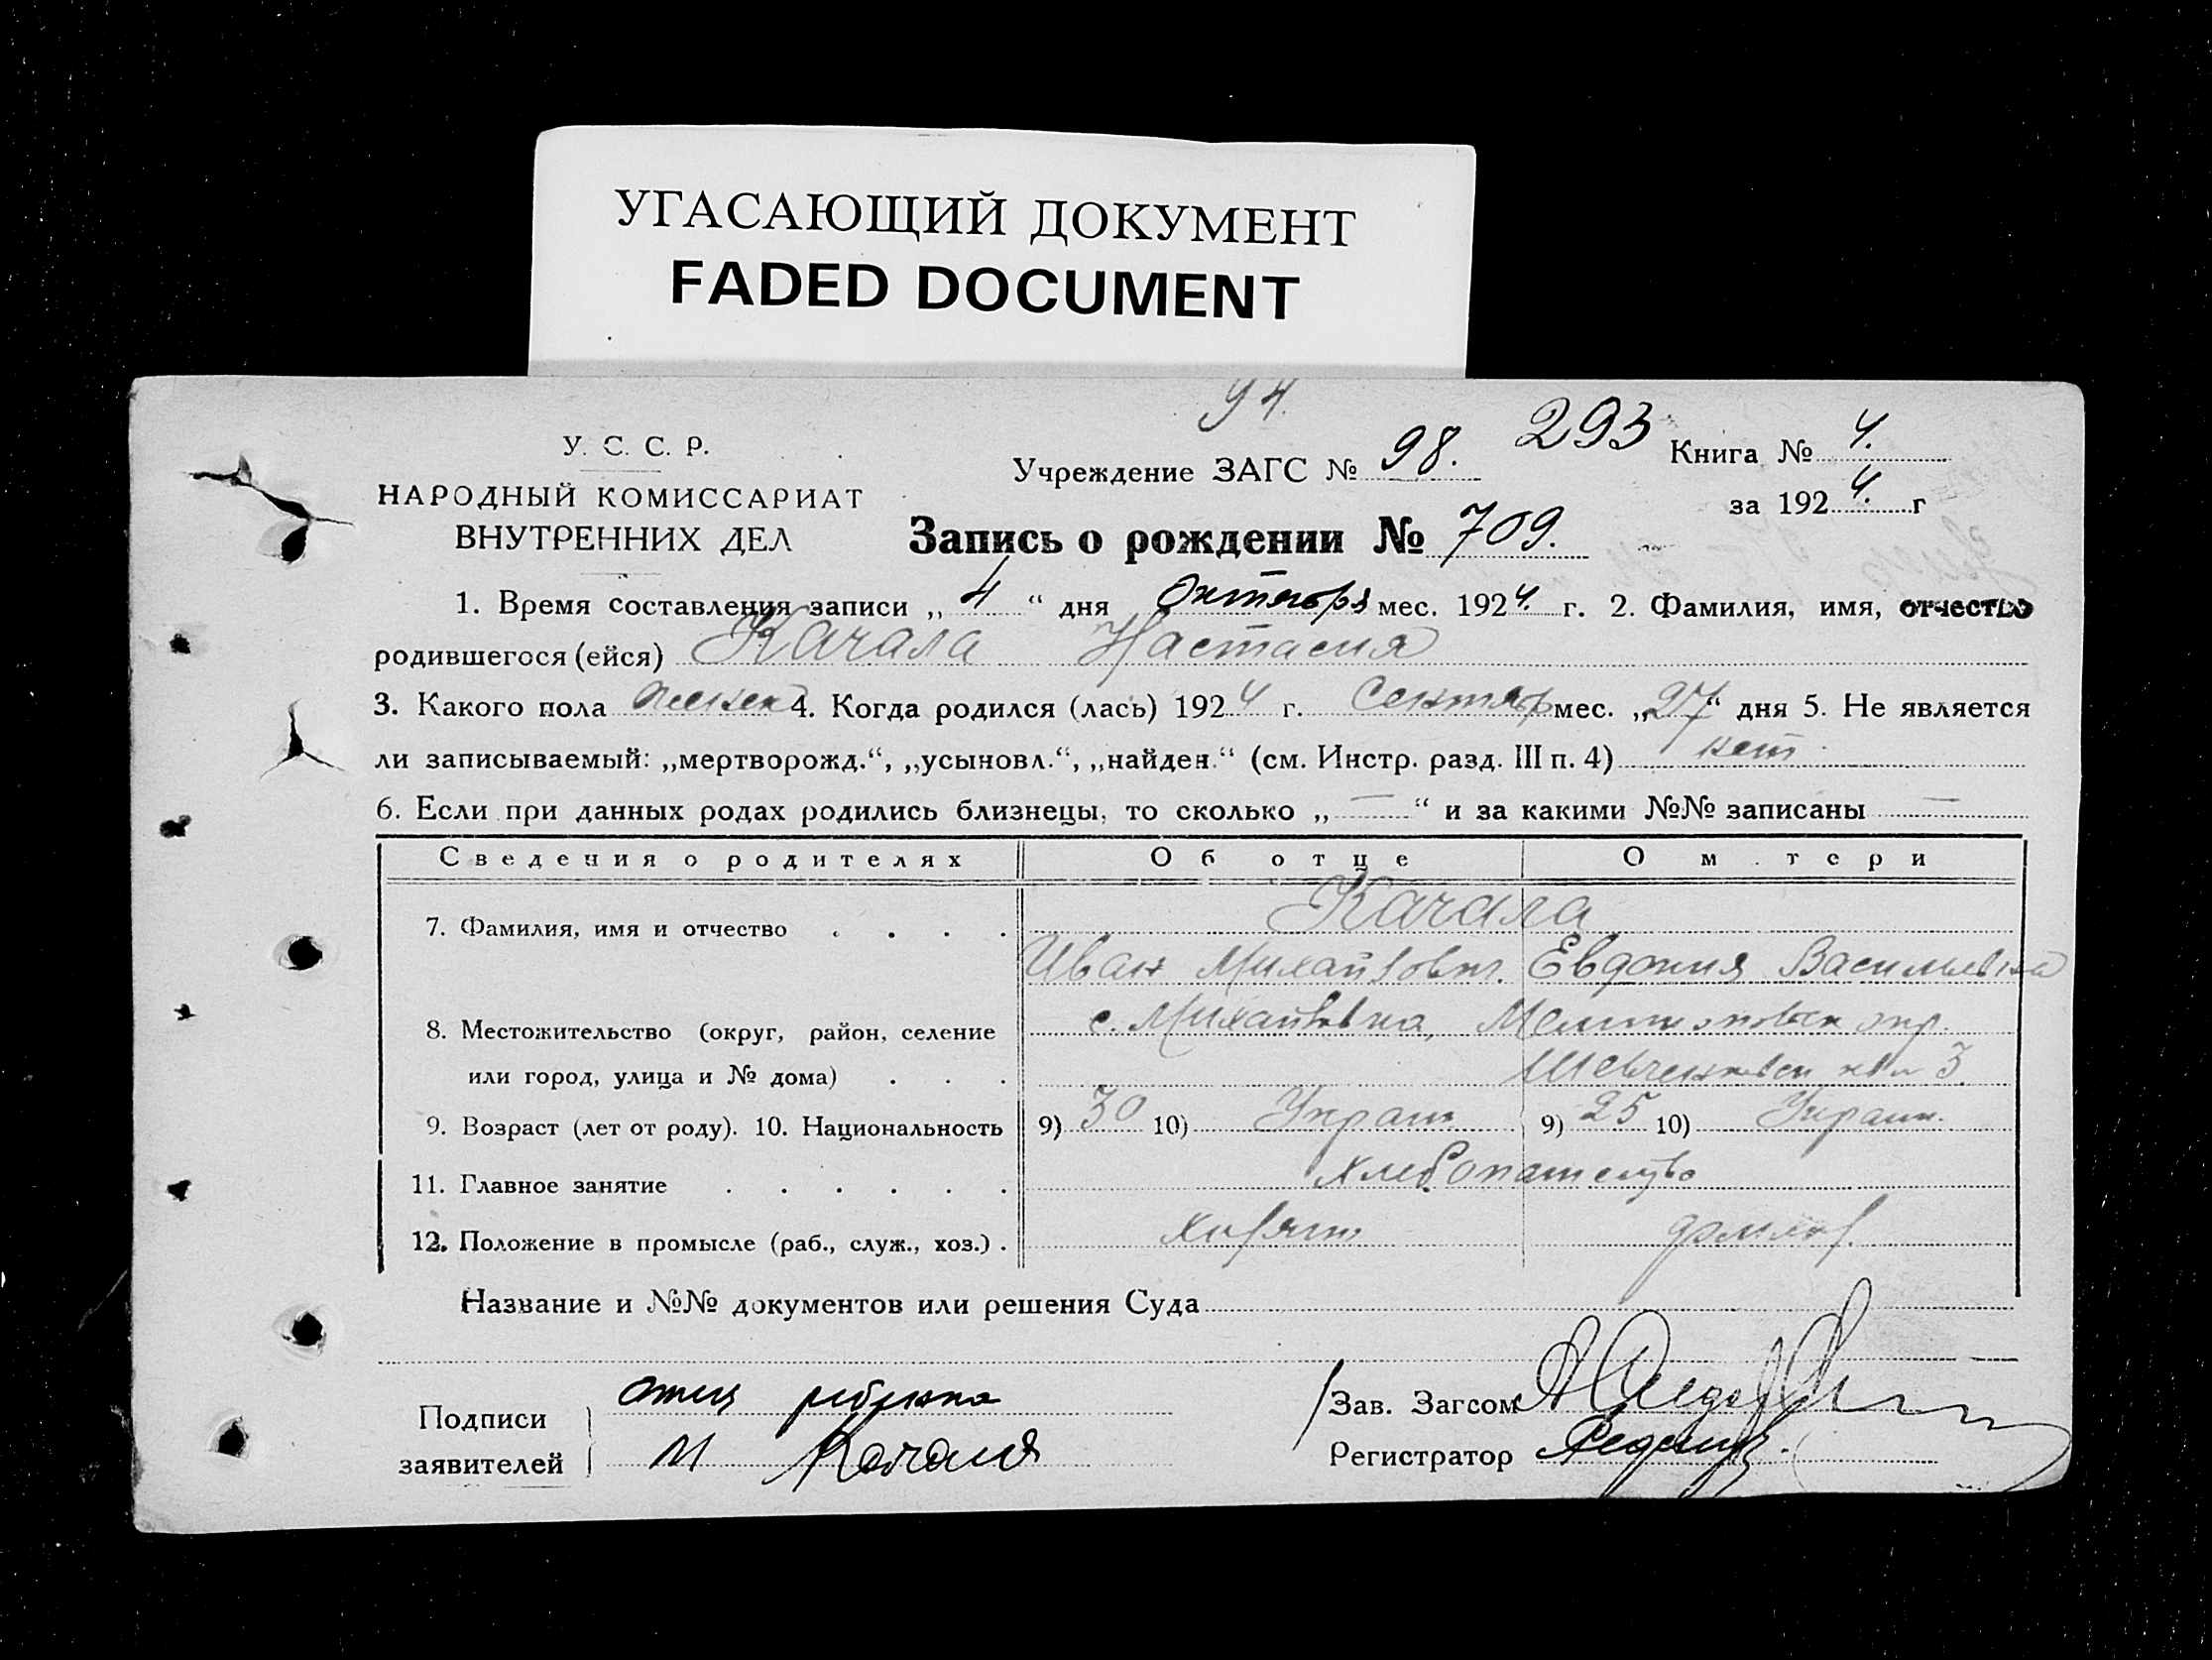 УГАСАЮЩИЙ ДОКУМЕНТ
FADED DOCUMENT
94.
У. С. С. Р.
НАРОДНЫЙ КОМИССАРИАТ
ВНУТРЕННИХ ДЕЛ
Учреждение ЗАГС № 98. 293 Книга № 4.
за 1924. г
Запись о рождении № 709.
1. Время составления записи „ 4 “ дня Октября мес. 1924. г. 2. Фамилия, имя, отчество
родившегося (ейся) Качала Настасия
3. Какого пола женск 4. Когда родился (лась) 1924 г. Сентябр мес. „27“ дня 5. Не является
ли записываемый: „мертворожд.“, „усыновл.“, „найден.“ (см. Инстр. разд. III п. 4) нет
6. Если при данных родах родились близнецы, то сколько „ — “ и за какими №№ записаны —
Сведения о родителях Об отце О м тери
7. Фамилия, имя и отчество . . . . Качала
Иван Михайлович. Евдокия Васильевна
8. Местожительство (округ, район, селение с. Михайловка, Мелитопольск окр.
или город, улица и № дома) . . . 3
9. Возраст (лет от роду). 10. Национальность 9) 30 10) Украин 9) 25 10) Украин.
11. Главное занятие . . . . . . хлебопашество
12. Положение в промысле (раб., служ., хоз.) . хозяин домхоз.
Название и №№ документов или решения Суда
Подписи заявителей отец ребенка
Качала
Зав. Загсом
Регистратор